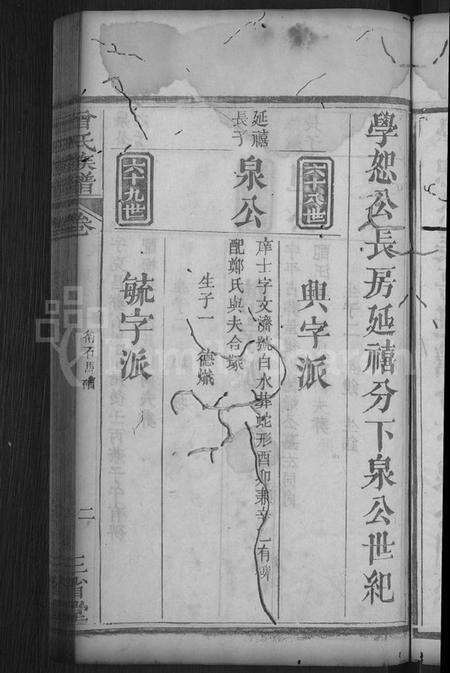 學恕公長房延禧分下泉公世紀
六十八世
興字派
延禧長子
泉公
庠士字文濤號白水葬蛇形酉卯兼辛乙有碑
配鄭氏與夫合塚
生子一 德熾
六十九世
毓字派
曾氏族譜
卷
二
三省堂